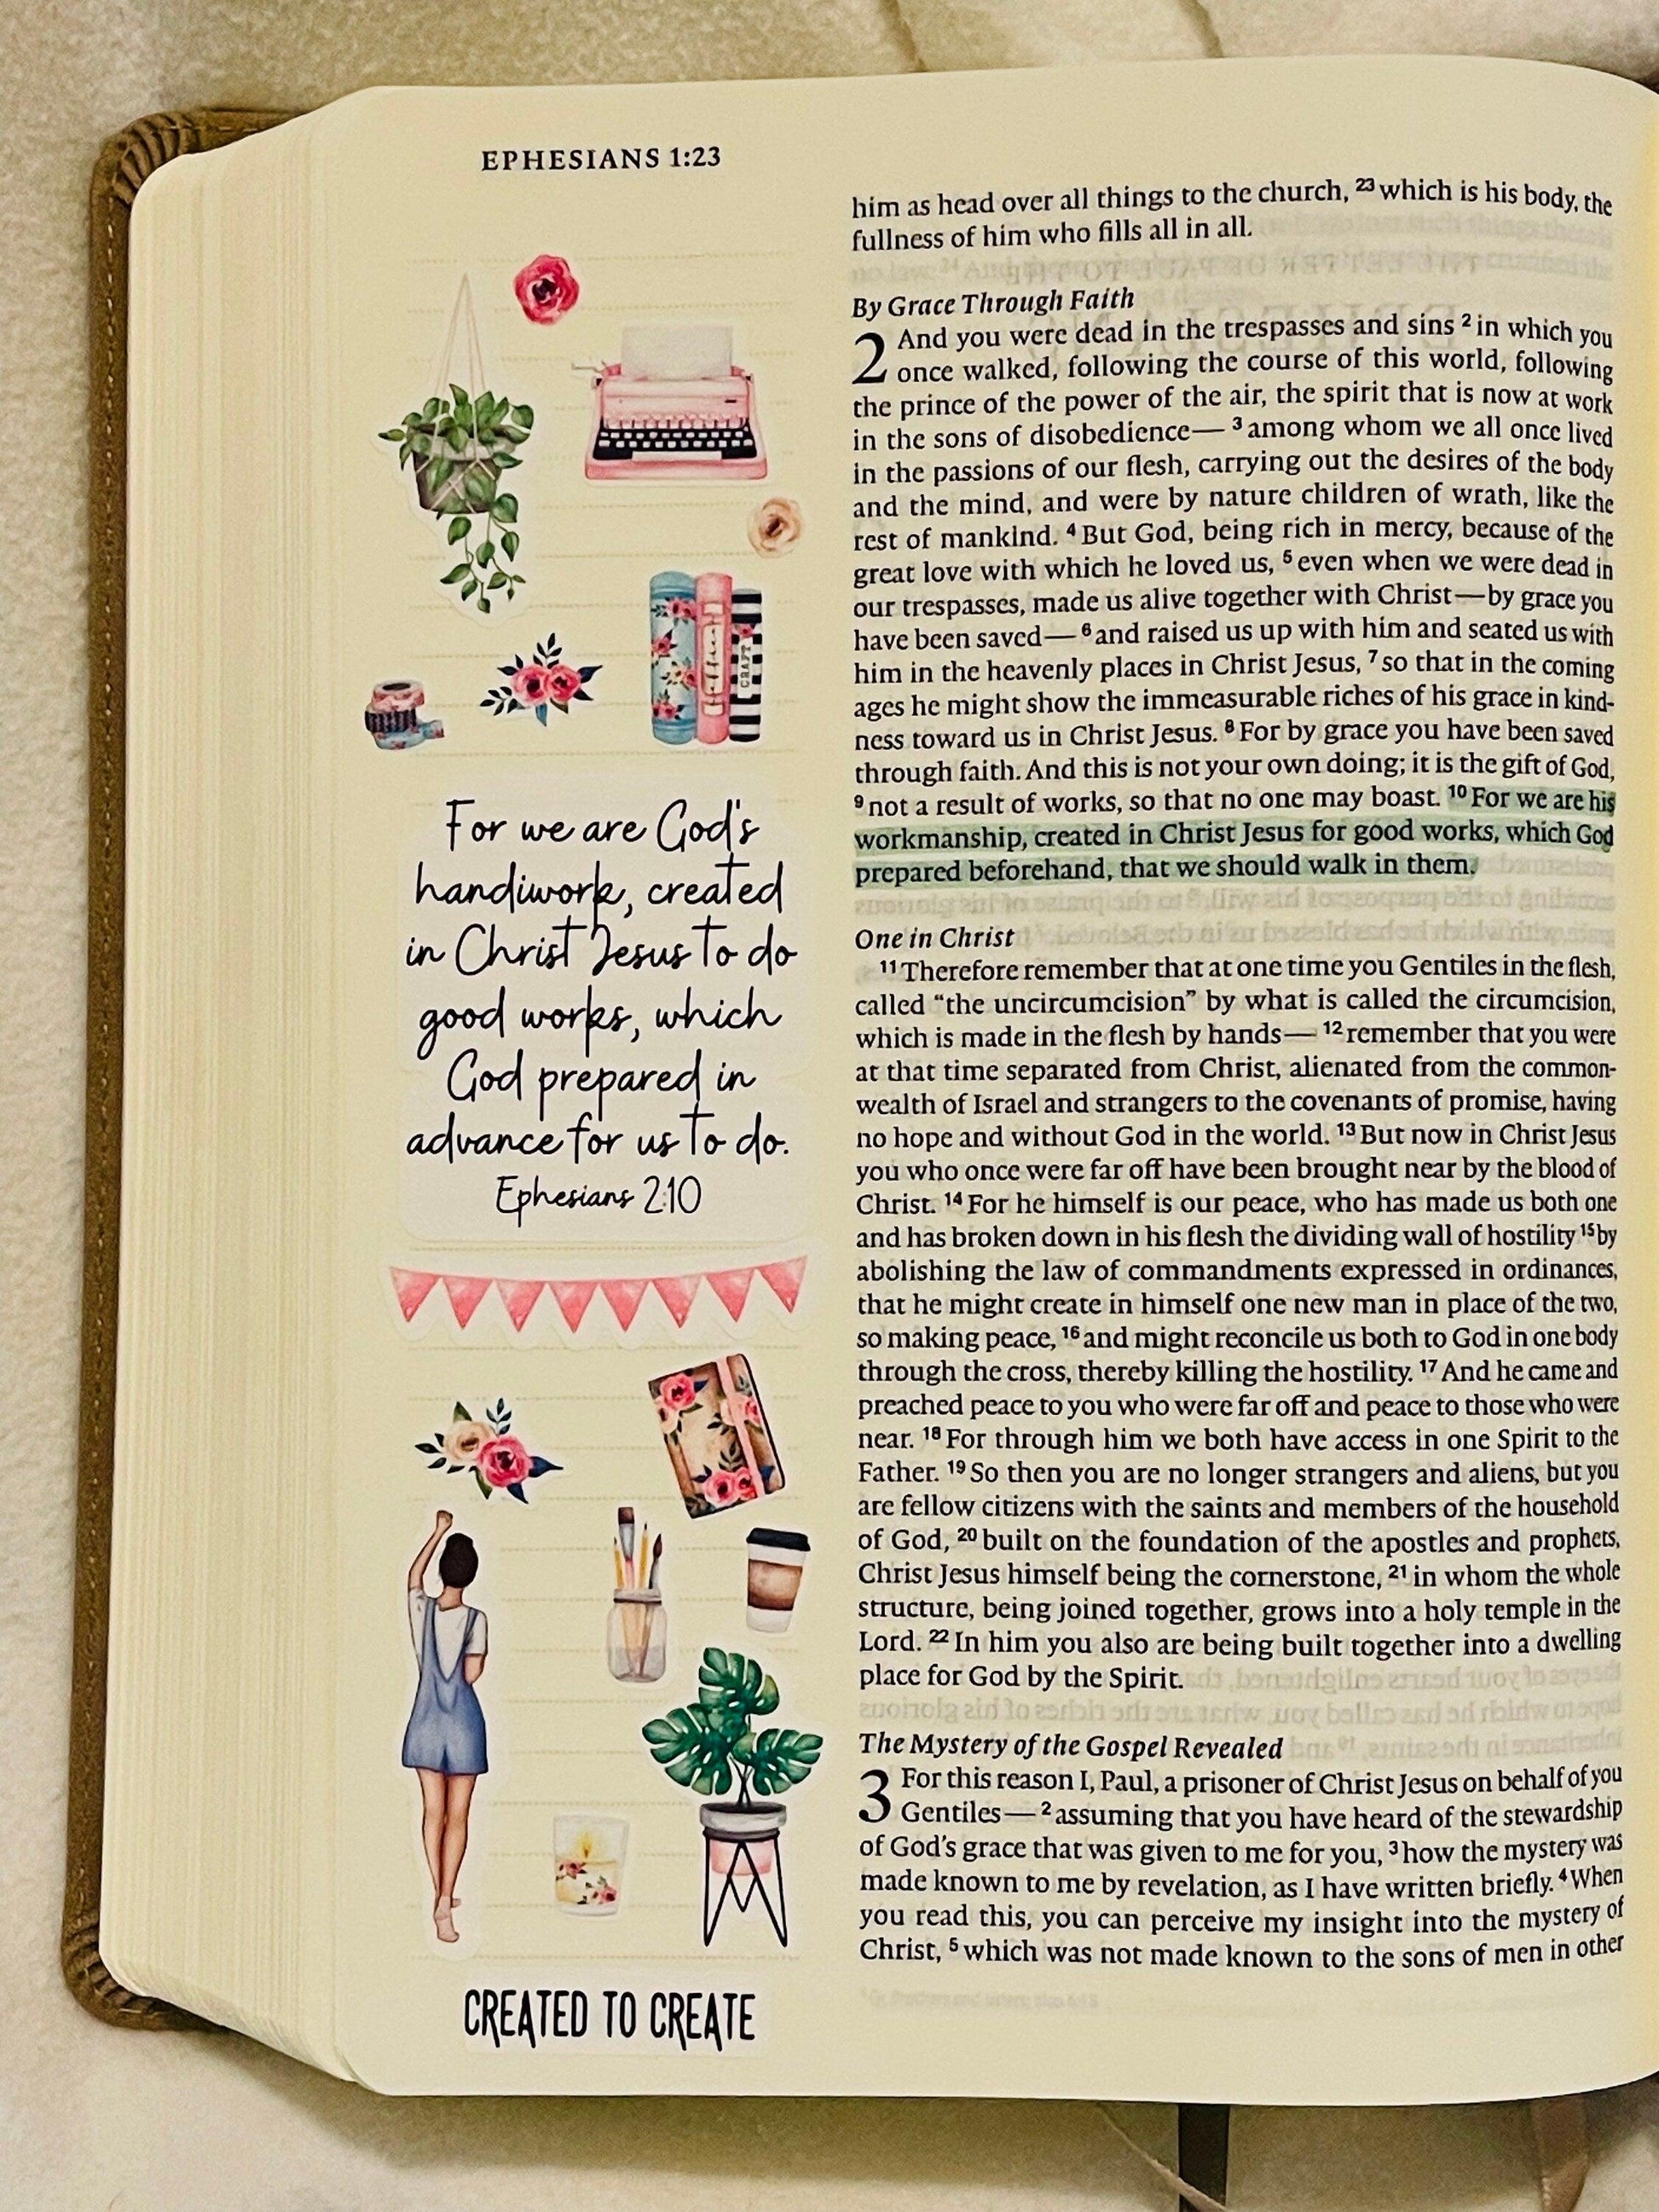 EPHESIANS 1:23
him as head over all things to the church, 23 which is his body, the
fullness of him who fills all in all.
By Grace Through Faith
2 And you were dead in the trespasses and sins 2 in which you
once walked, following the course of this world, following
the prince of the power of the air, the spirit that is now at work
in the sons of disobedience— 3 among whom we all once lived
in the passions of our flesh, carrying out the desires of the body
and the mind, and were by nature children of wrath, like the
rest of mankind. 4 But God, being rich in mercy, because of the
great love with which he loved us, 5 even when we were dead in
our trespasses, made us alive together with Christ—by grace you
have been saved— 6 and raised us up with him and seated us with
him in the heavenly places in Christ Jesus, 7 so that in the coming
ages he might show the immeasurable riches of his grace in kind-
ness toward us in Christ Jesus. 8 For by grace you have been saved
through faith. And this is not your own doing; it is the gift of God,
9 not a result of works, so that no one may boast. 10 For we are his
workmanship, created in Christ Jesus for good works, which God
prepared beforehand, that we should walk in them.
One in Christ
11 Therefore remember that at one time you Gentiles in the flesh,
called “the uncircumcision” by what is called the circumcision,
which is made in the flesh by hands— 12 remember that you were
at that time separated from Christ, alienated from the common-
wealth of Israel and strangers to the covenants of promise, having
no hope and without God in the world. 13 But now in Christ Jesus
you who once were far off have been brought near by the blood of
Christ. 14 For he himself is our peace, who has made us both one
and has broken down in his flesh the dividing wall of hostility 15 by
abolishing the law of commandments expressed in ordinances,
that he might create in himself one new man in place of the two,
so making peace, 16 and might reconcile us both to God in one body
through the cross, thereby killing the hostility. 17 And he came and
preached peace to you who were far off and peace to those who were
near. 18 For through him we both have access in one Spirit to the
Father. 19 So then you are no longer strangers and aliens, but you
are fellow citizens with the saints and members of the household
of God, 20 built on the foundation of the apostles and prophets,
Christ Jesus himself being the cornerstone, 21 in whom the whole
structure, being joined together, grows into a holy temple in the
Lord. 22 In him you also are being built together into a dwelling
place for God by the Spirit.
The Mystery of the Gospel Revealed
3 For this reason I, Paul, a prisoner of Christ Jesus on behalf of you
Gentiles— 2 assuming that you have heard of the stewardship
of God’s grace that was given to me for you, 3 how the mystery was
made known to me by revelation, as I have written briefly. 4 When
you read this, you can perceive my insight into the mystery of
Christ, 5 which was not made known to the sons of men in other
CRAFT
For we are God's
handiwork, created
in Christ Jesus to do
good works, which
God prepared in
advance for us to do.
Ephesians 2:10
CREATED TO CREATE